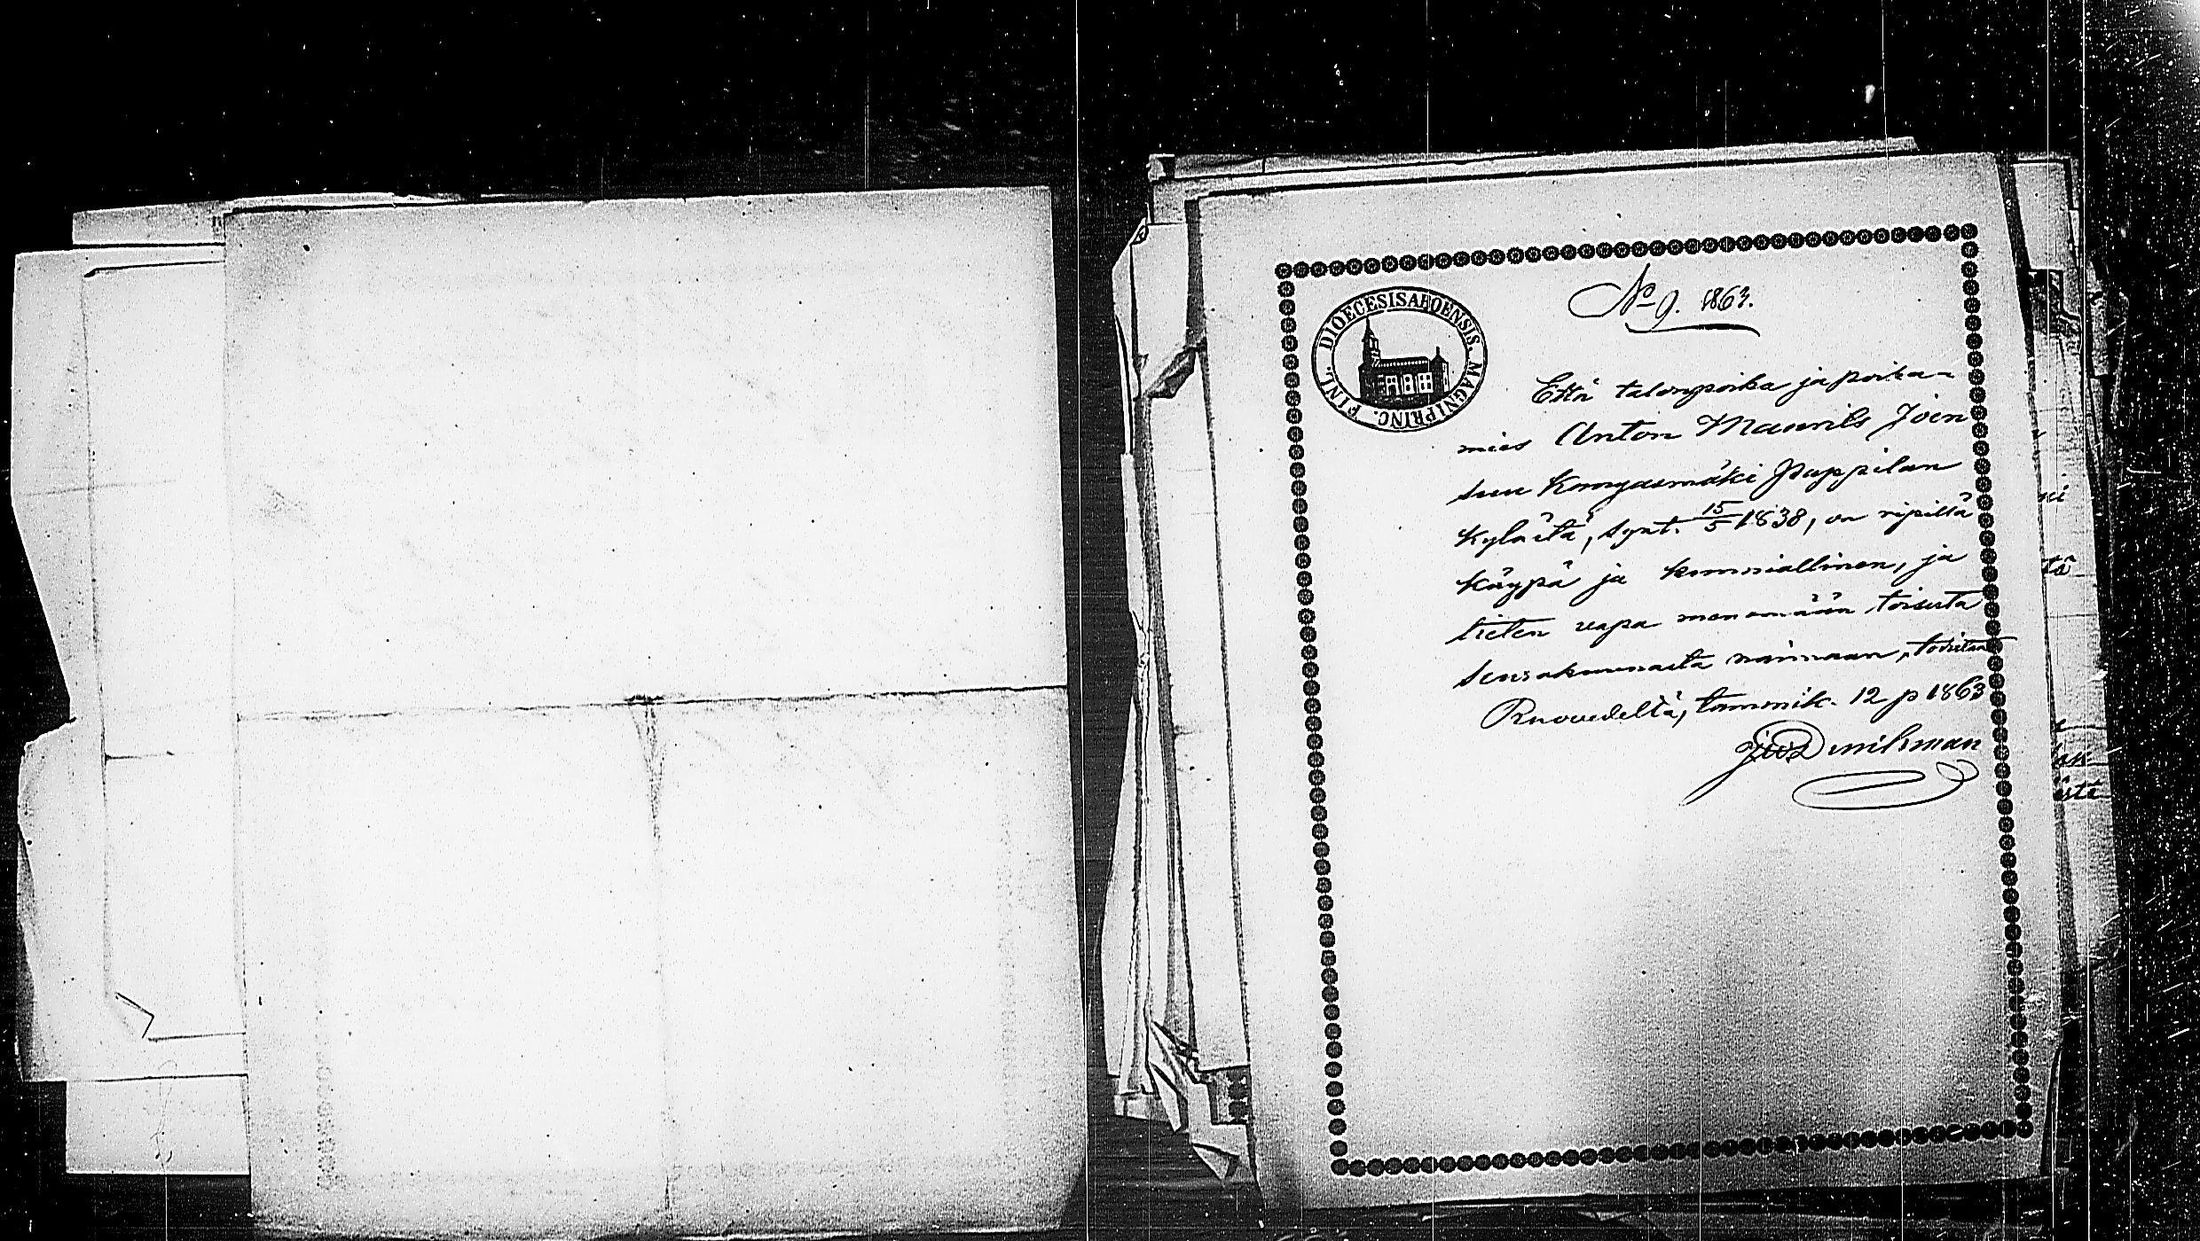 DIOECESIS ABOENSIS. MAGNI PRINC. FINL.
No 9. 1863.
Että talonpoika ja poika-
mies Anton Maurits Joen
suu Kangasmäki Pappilan
kylästä, synt. 15/5 1838, on ripillä
käypä ja kunniallinen, ja
tieten vapa menemään toisesta
seurakunnasta naimaan, todistan
Ruovedeltä, tammik. 12 p 1863